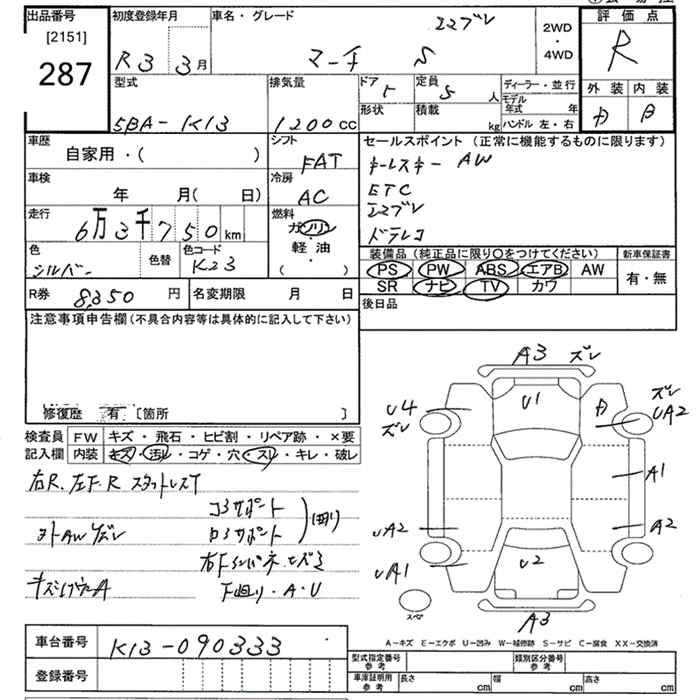 出品番号
[2151]
287
初度登録年月
R3 3月
車名・グレード
エマブレ
マーチ S
2WD
・
4WD
評価点
R
外装 内装
B
型式
5BA-K13
排気量
1200cc
ドア
ト
定員
5人
形状
積載
kg
ディーラー・並行
モデル年式 年
ハンドル 左・右
車歴
自家用・( )
シフト
FAT
車検
年 月( 日)
冷房
AC
走行
6万3千750km
燃料
ガソリン
軽油
( )
色
シルバー
色替
色コード
K23
R券 8,350円
名変期限 月 日
セールスポイント (正常に機能するものに限ります)
キーレスキー AW
ETC
エマブレ
ドラレコ
装備品(純正品に限り○をつけてください)
新車保証書
PS PW ABS エアB AW
SR ナビ TV カワ
有・無
後日品
注意事項申告欄(不具合内容等は具体的に記入して下さい)
修復歴 有 [箇所 ]
検査員記入欄
FW キズ・飛石・ヒビ割・リペア跡・×要
内装 キズ・汚レ・コゲ・穴・スレ・キレ・破レ
右R、左F.R スタットレスT
コアサポート
ロアサポート
曲り
右Fインパネ ヒズミ
下廻り・A・U
A3 ズレ
U1
U4
ズレ
ズレ
UA2
A1
UA2
A2
UA1
U2
A3
スペア
A-キズ E-エクボ U-凹み W-補修跡 S-サビ C-腐食 XX-交換済
車台番号 K13-090333
登録番号
型式指定番号
参考
類別区分番号
参考
車庫証明用
参考
長さ cm 幅 cm 高さ cm